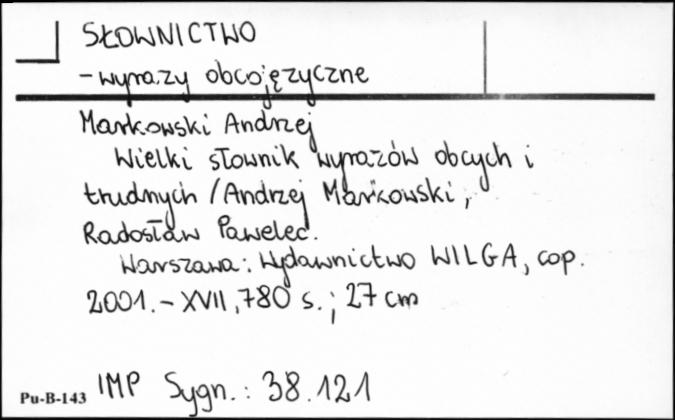 SŁOWNICTWO
- wyrazy obcojęzyczne
Markowski Andrzej
Wielki słownik wyrazów obcych i
trudnych / Andrzej Markowski,
Radosław Pawelec.
Warszawa: Wydawnictwo WILGA, cop.
2001. - XVII, 780 s. ; 27 cm
Pu-B-143 IMP Sygn.: 38.121